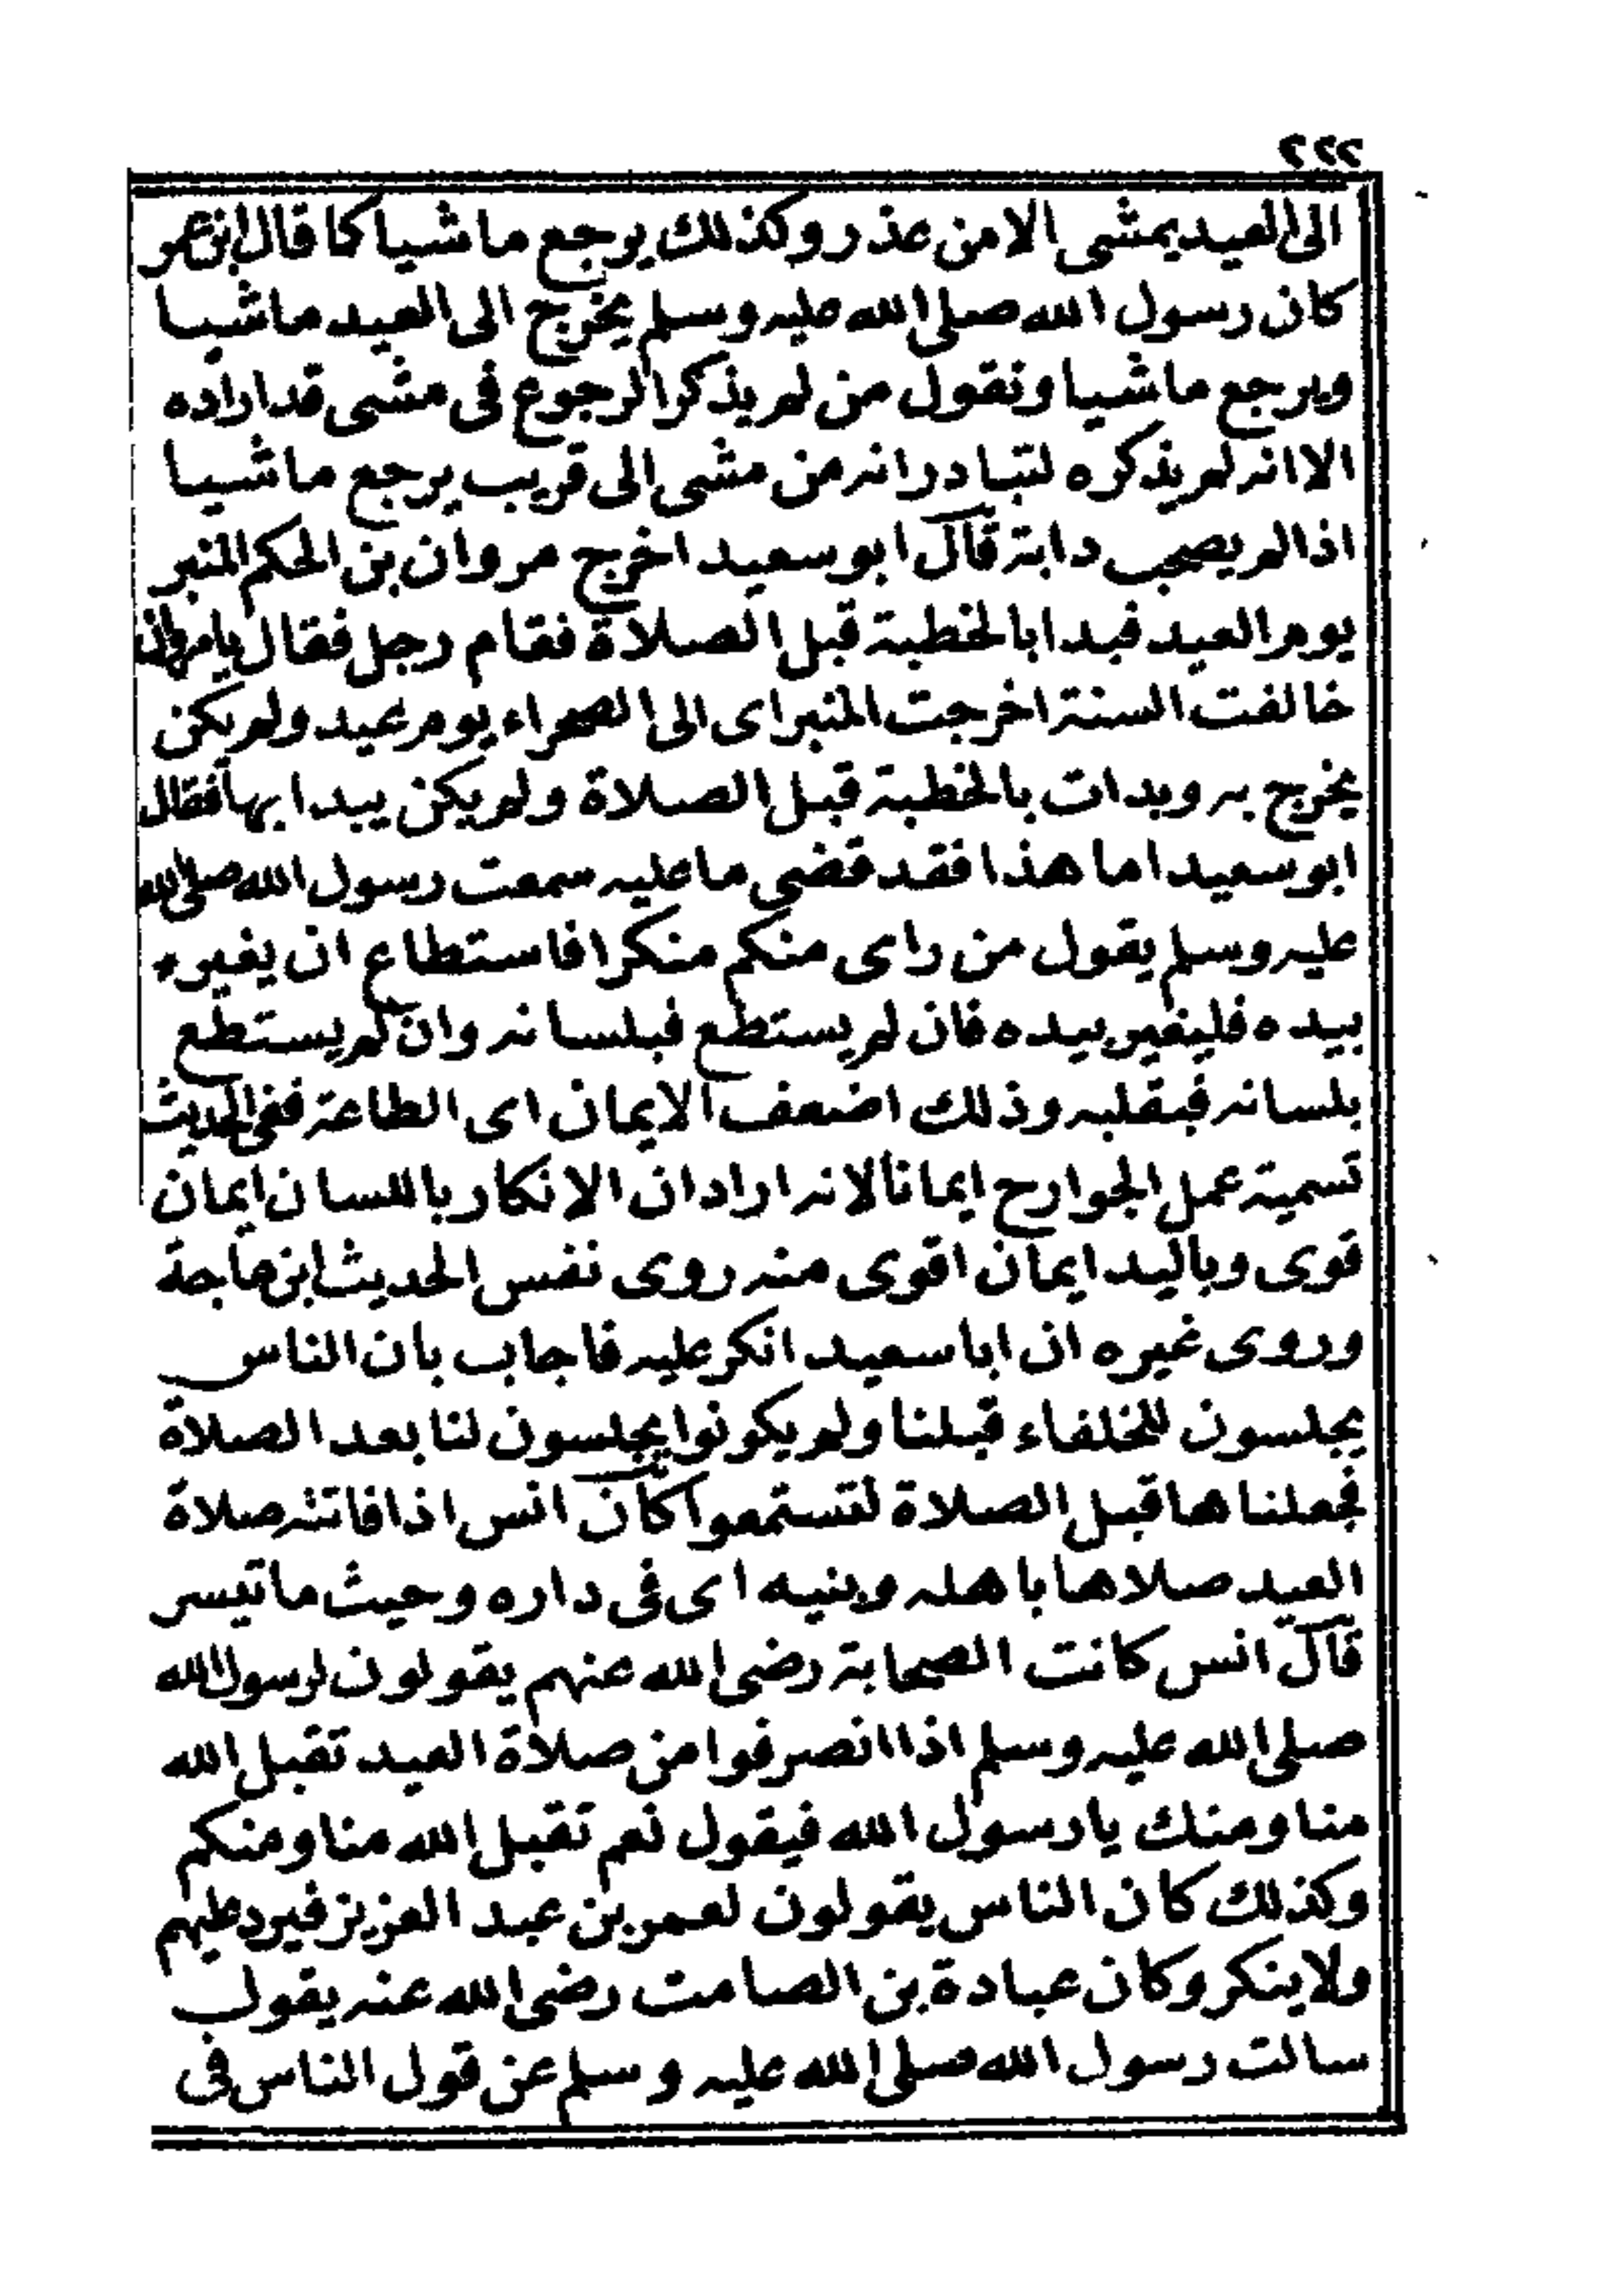 ٢٢٢
الى العيد يمشى الا من عذر وكذلك يرجع ماشيا كما قال ابن عمر
كان رسول الله صلى الله عليه وسلم يخرج الى العيد ماشيا
ويرجع ماشيا ونقول من لم يذكر الرجوع فى مشى قد اراده
الا انه لم يذكره لتبادر انه من مشى الى قريب يرجع ماشيا
اذا لم يصحب دابة قال ابو سعيد اخرج مروان بن الحكم المنبر
يوم العيد فبدا بالخطبة قبل الصلاة فقام رجل فقال يا مروان
خالفت السنة اخرجت المنبر اى الى الصحراء يوم عيد ولم يكن
يخرج به وبدات بالخطبة قبل الصلاة ولم يكن يبدا بها فقال
ابو سعيد اما هذا فقد قضى ما عليه سمعت رسول الله صلى الله
عليه وسلم يقول من راى منكم منكرا فاستطاع ان يغيره
بيده فليغيره بيده فان لم يستطع فبلسانه وان لم يستطع
بلسانه فبقلبه وذلك اضعف الايمان اى الطاعة ففى الحديث
تسمية عمل الجوارح ايمانا لانه اراد ان الانكار باللسان ايمان
قوى وباليد ايمان اقوى منه روى نفس الحديث ابن ماجة
وروى غيره ان ابا سعيد انكر عليه فاجاب بان الناس
يجلسون للخلفاء قبلنا ولم يكونوا يجلسون لنا بعد الصلاة
فجعلناها قبل الصلاة لتستمعوا كان انس اذا فاتته صلاة
العيد صلاها باهله وبنيه اى فى داره وحيث ما تيسر
قال انس كانت الصحابة رضى الله عنهم يقولون لرسول الله
صلى الله عليه وسلم اذا انصرفوا من صلاة العيد تقبل الله
منا ومنك يا رسول الله فيقول نعم تقبل الله منا ومنكم
وكذلك كان الناس يقولون لعمر بن عبد العزيز فيرد عليهم
ولا ينكر وكان عبادة بن الصامت رضى الله عنه يقول
سالت رسول الله صلى الله عليه وسلم عن قول الناس فى